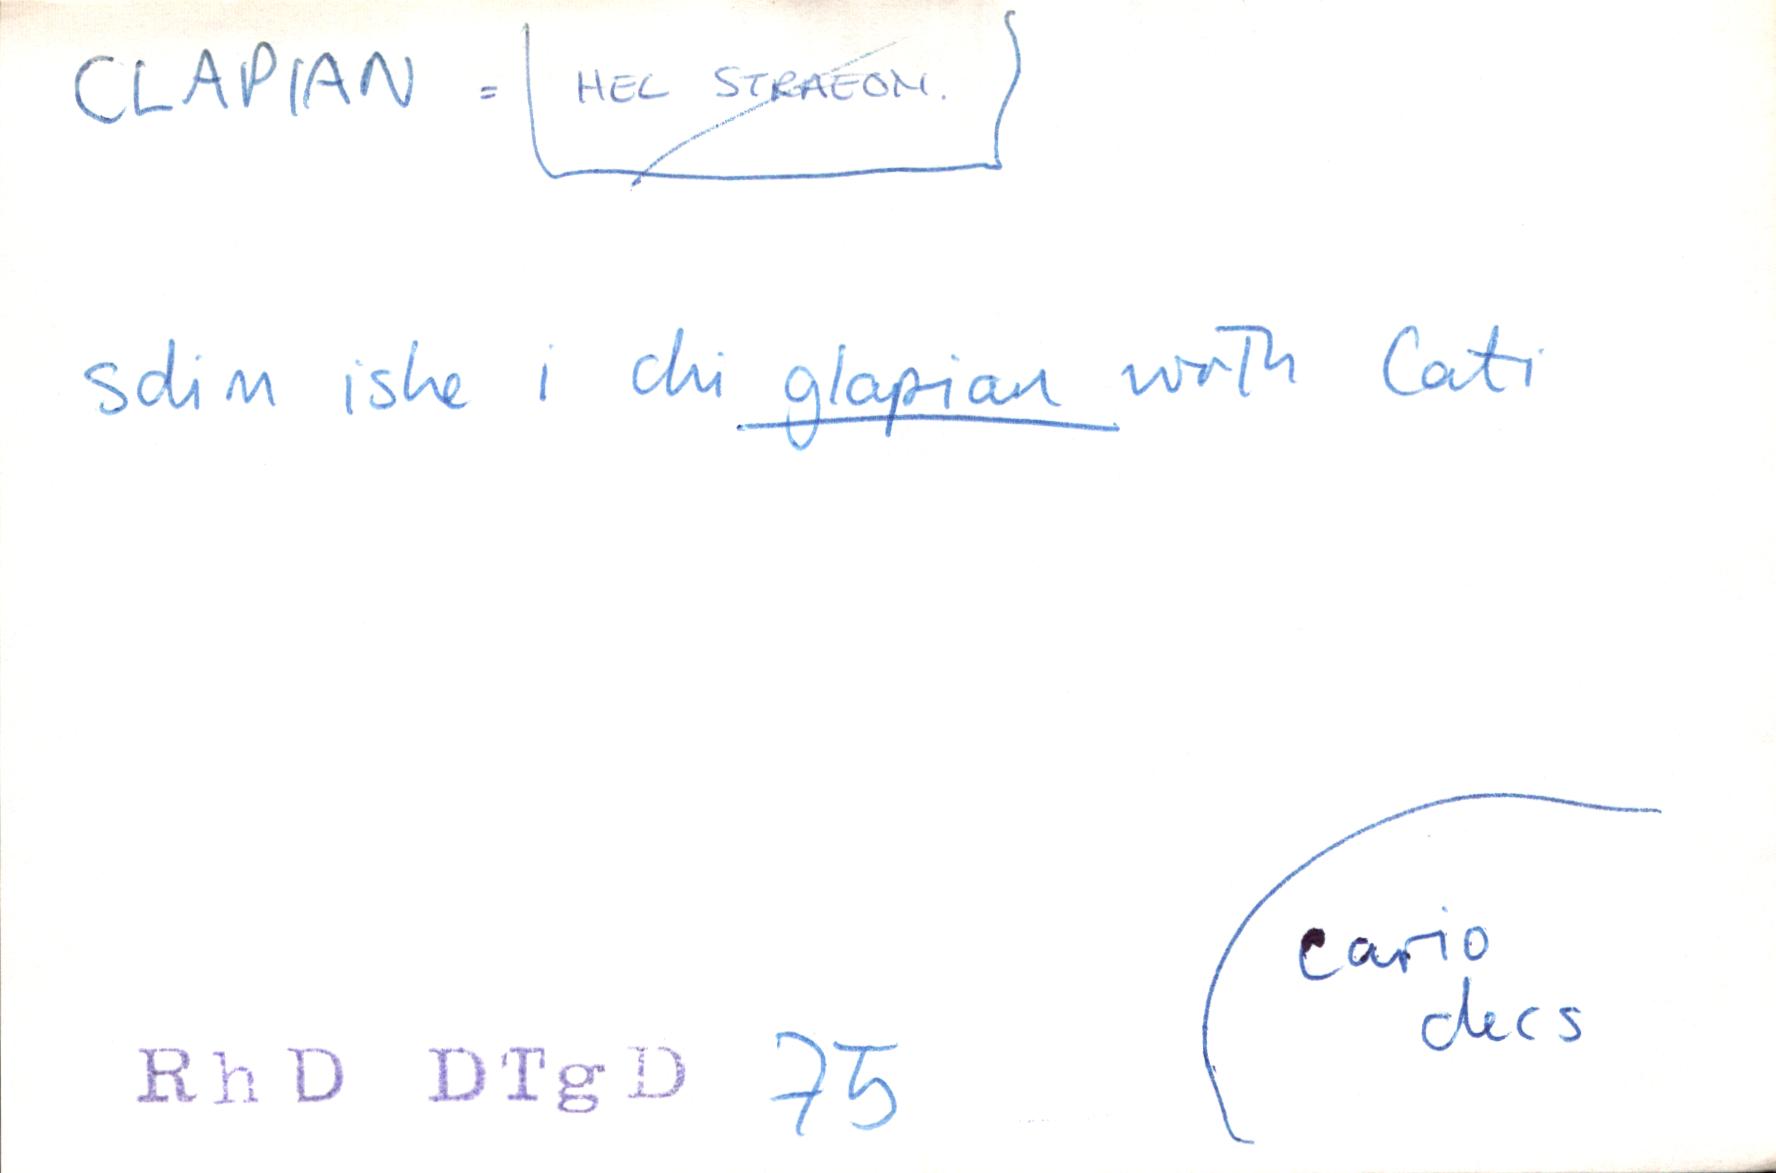 CLAPIAN = HEL STRAEON.
sdim ishe i chi glapian wrth Cati
cario
clecs
RhD DTgD 75